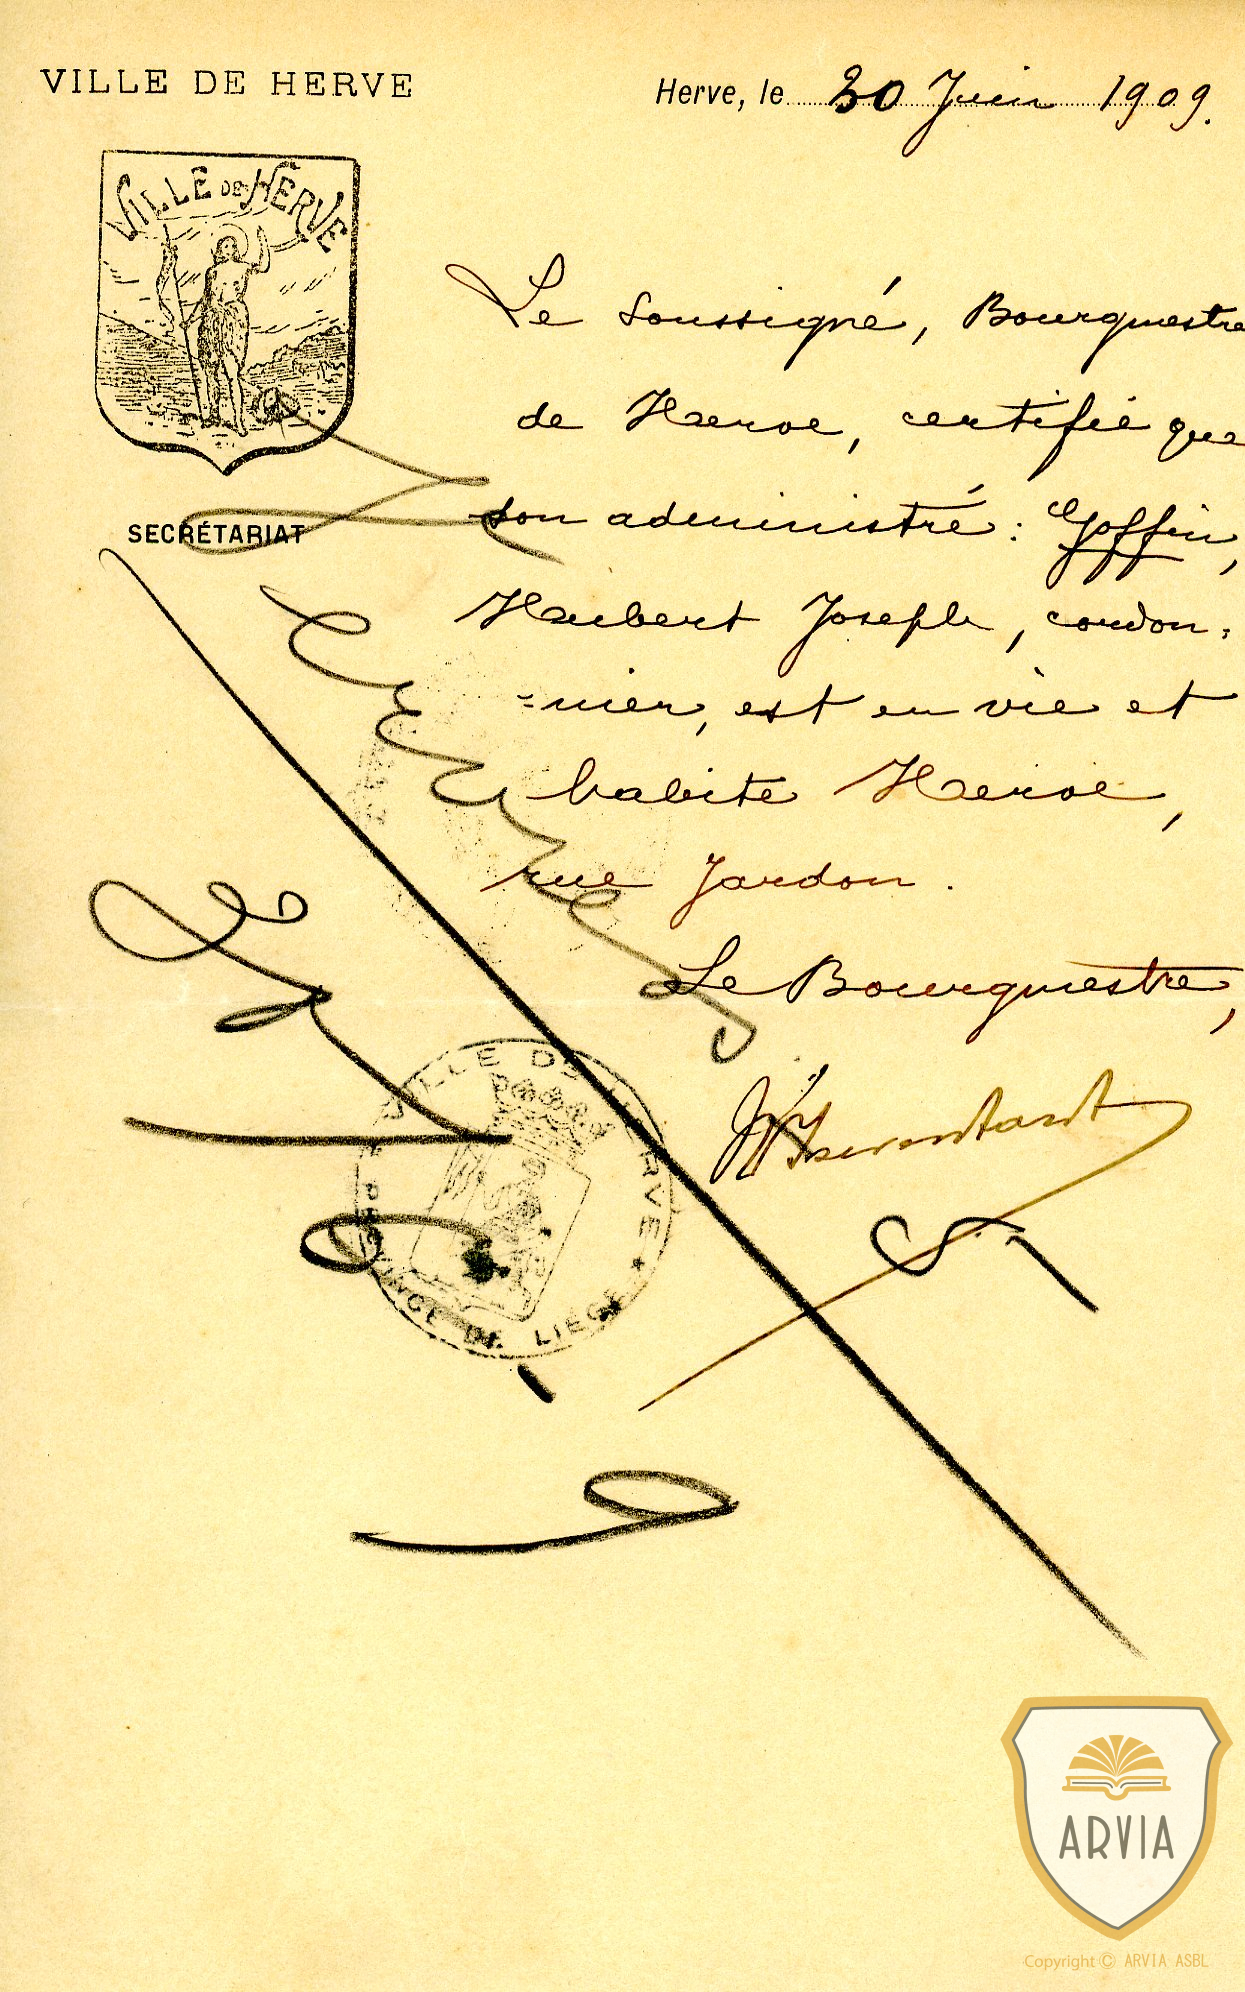 VILLE DE HERVE
Herve, le 30 Juin 1909.
VILLE DE HERVE
SECRÉTARIAT
Le soussigné, Bourgmestre
de Herve, certifie que
son administré : Goffin,
Hubert Joseph, cordon=
=nier, est en vie et
habite Herve,
rue Jardon.
Le Bourgmestre,
VILLE DE HERVE
PROVINCE DE LIÉGE
ARVIA
Copyright © ARVIA ASBL